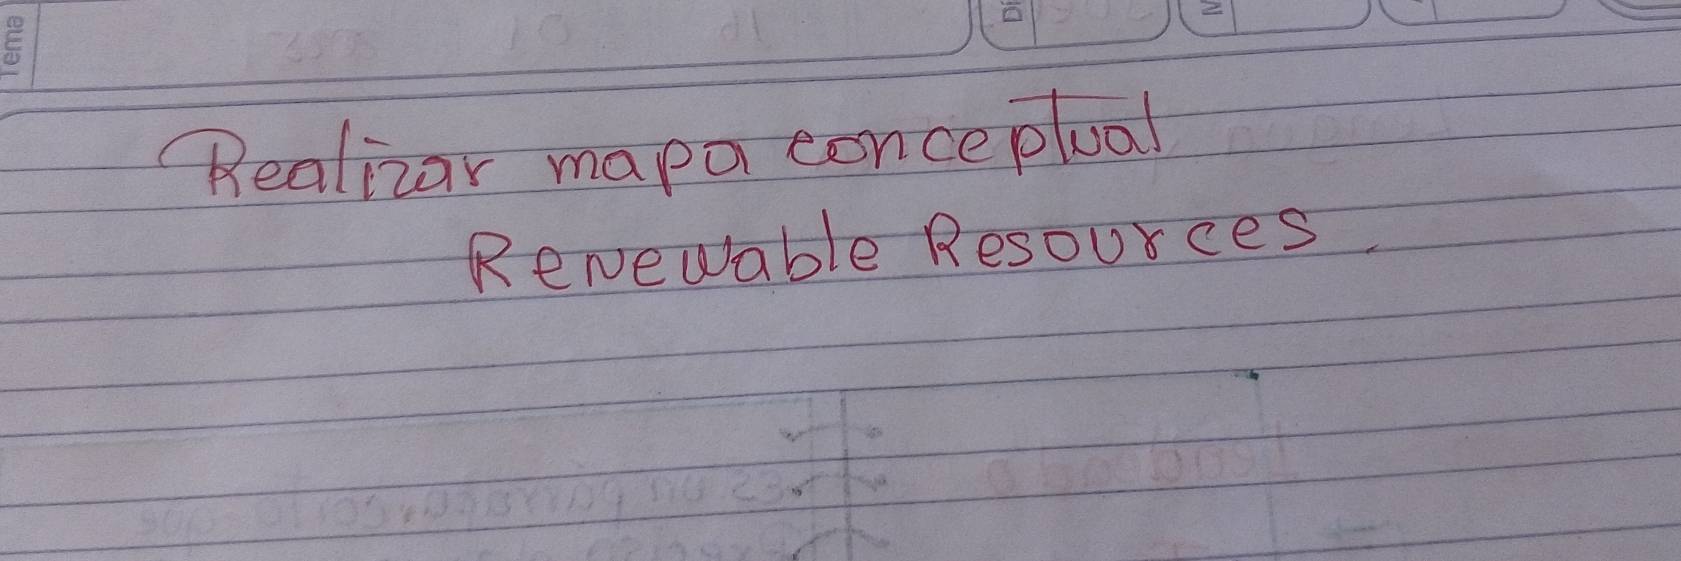 Tema
Di
Realizar mapa conceptual
Renewable Resources.